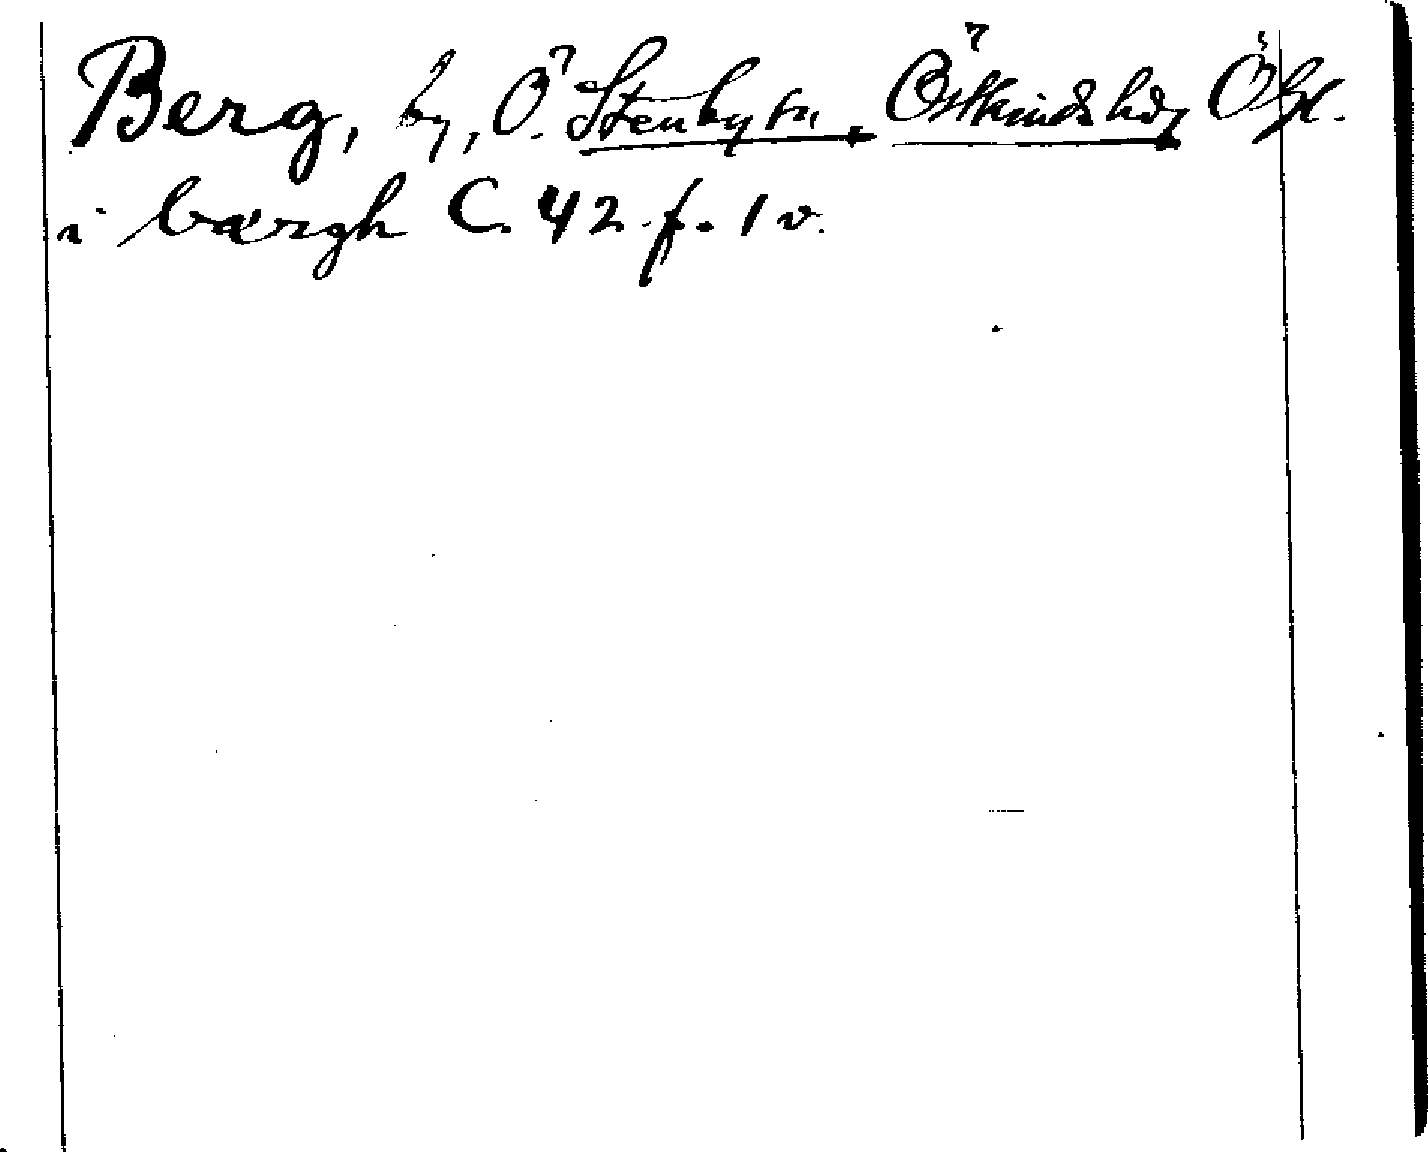 Berg, by, Ö. Stenby sn, Östkinds hd, Ögl.
i bærgh C. 42 f. 1 v.